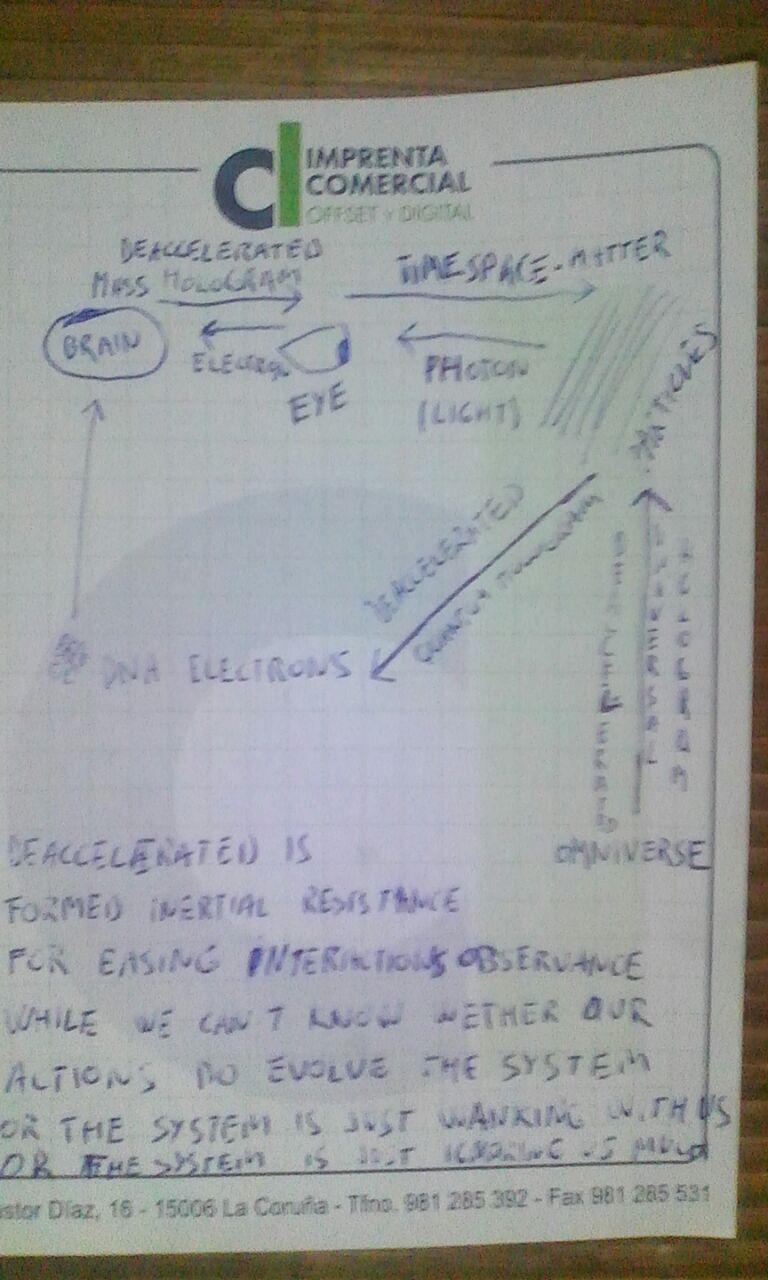 IMPRENTA
COMERCIAL
OFFSET Y DIGITAL
DEACCELERATED
MASS HOLOGRAM
TIMESPACE-MATTER
BRAIN
ELECTRON
EYE
PHOTON
(LIGHT)
DEACCELERATED
QUANTUM HOLOGRAM
HOLOGRAM
DNA ELECTRONS
OMNIVERSE
DEACCELERATED IS
FORMED INERTIAL RESISTANCE
FOR EASING INTERACTIONS OBSERVANCE
WHILE WE CAN'T KNOW WETHER OUR
ACTIONS DO EVOLVE THE SYSTEM
OR THE SYSTEM IS JUST WANKING WITH US
OR THE SYSTEM IS JUST IGNORING US
astor Díaz, 16 - 15006 La Coruña - Tlfno. 981 285 392 - Fax 981 285 531